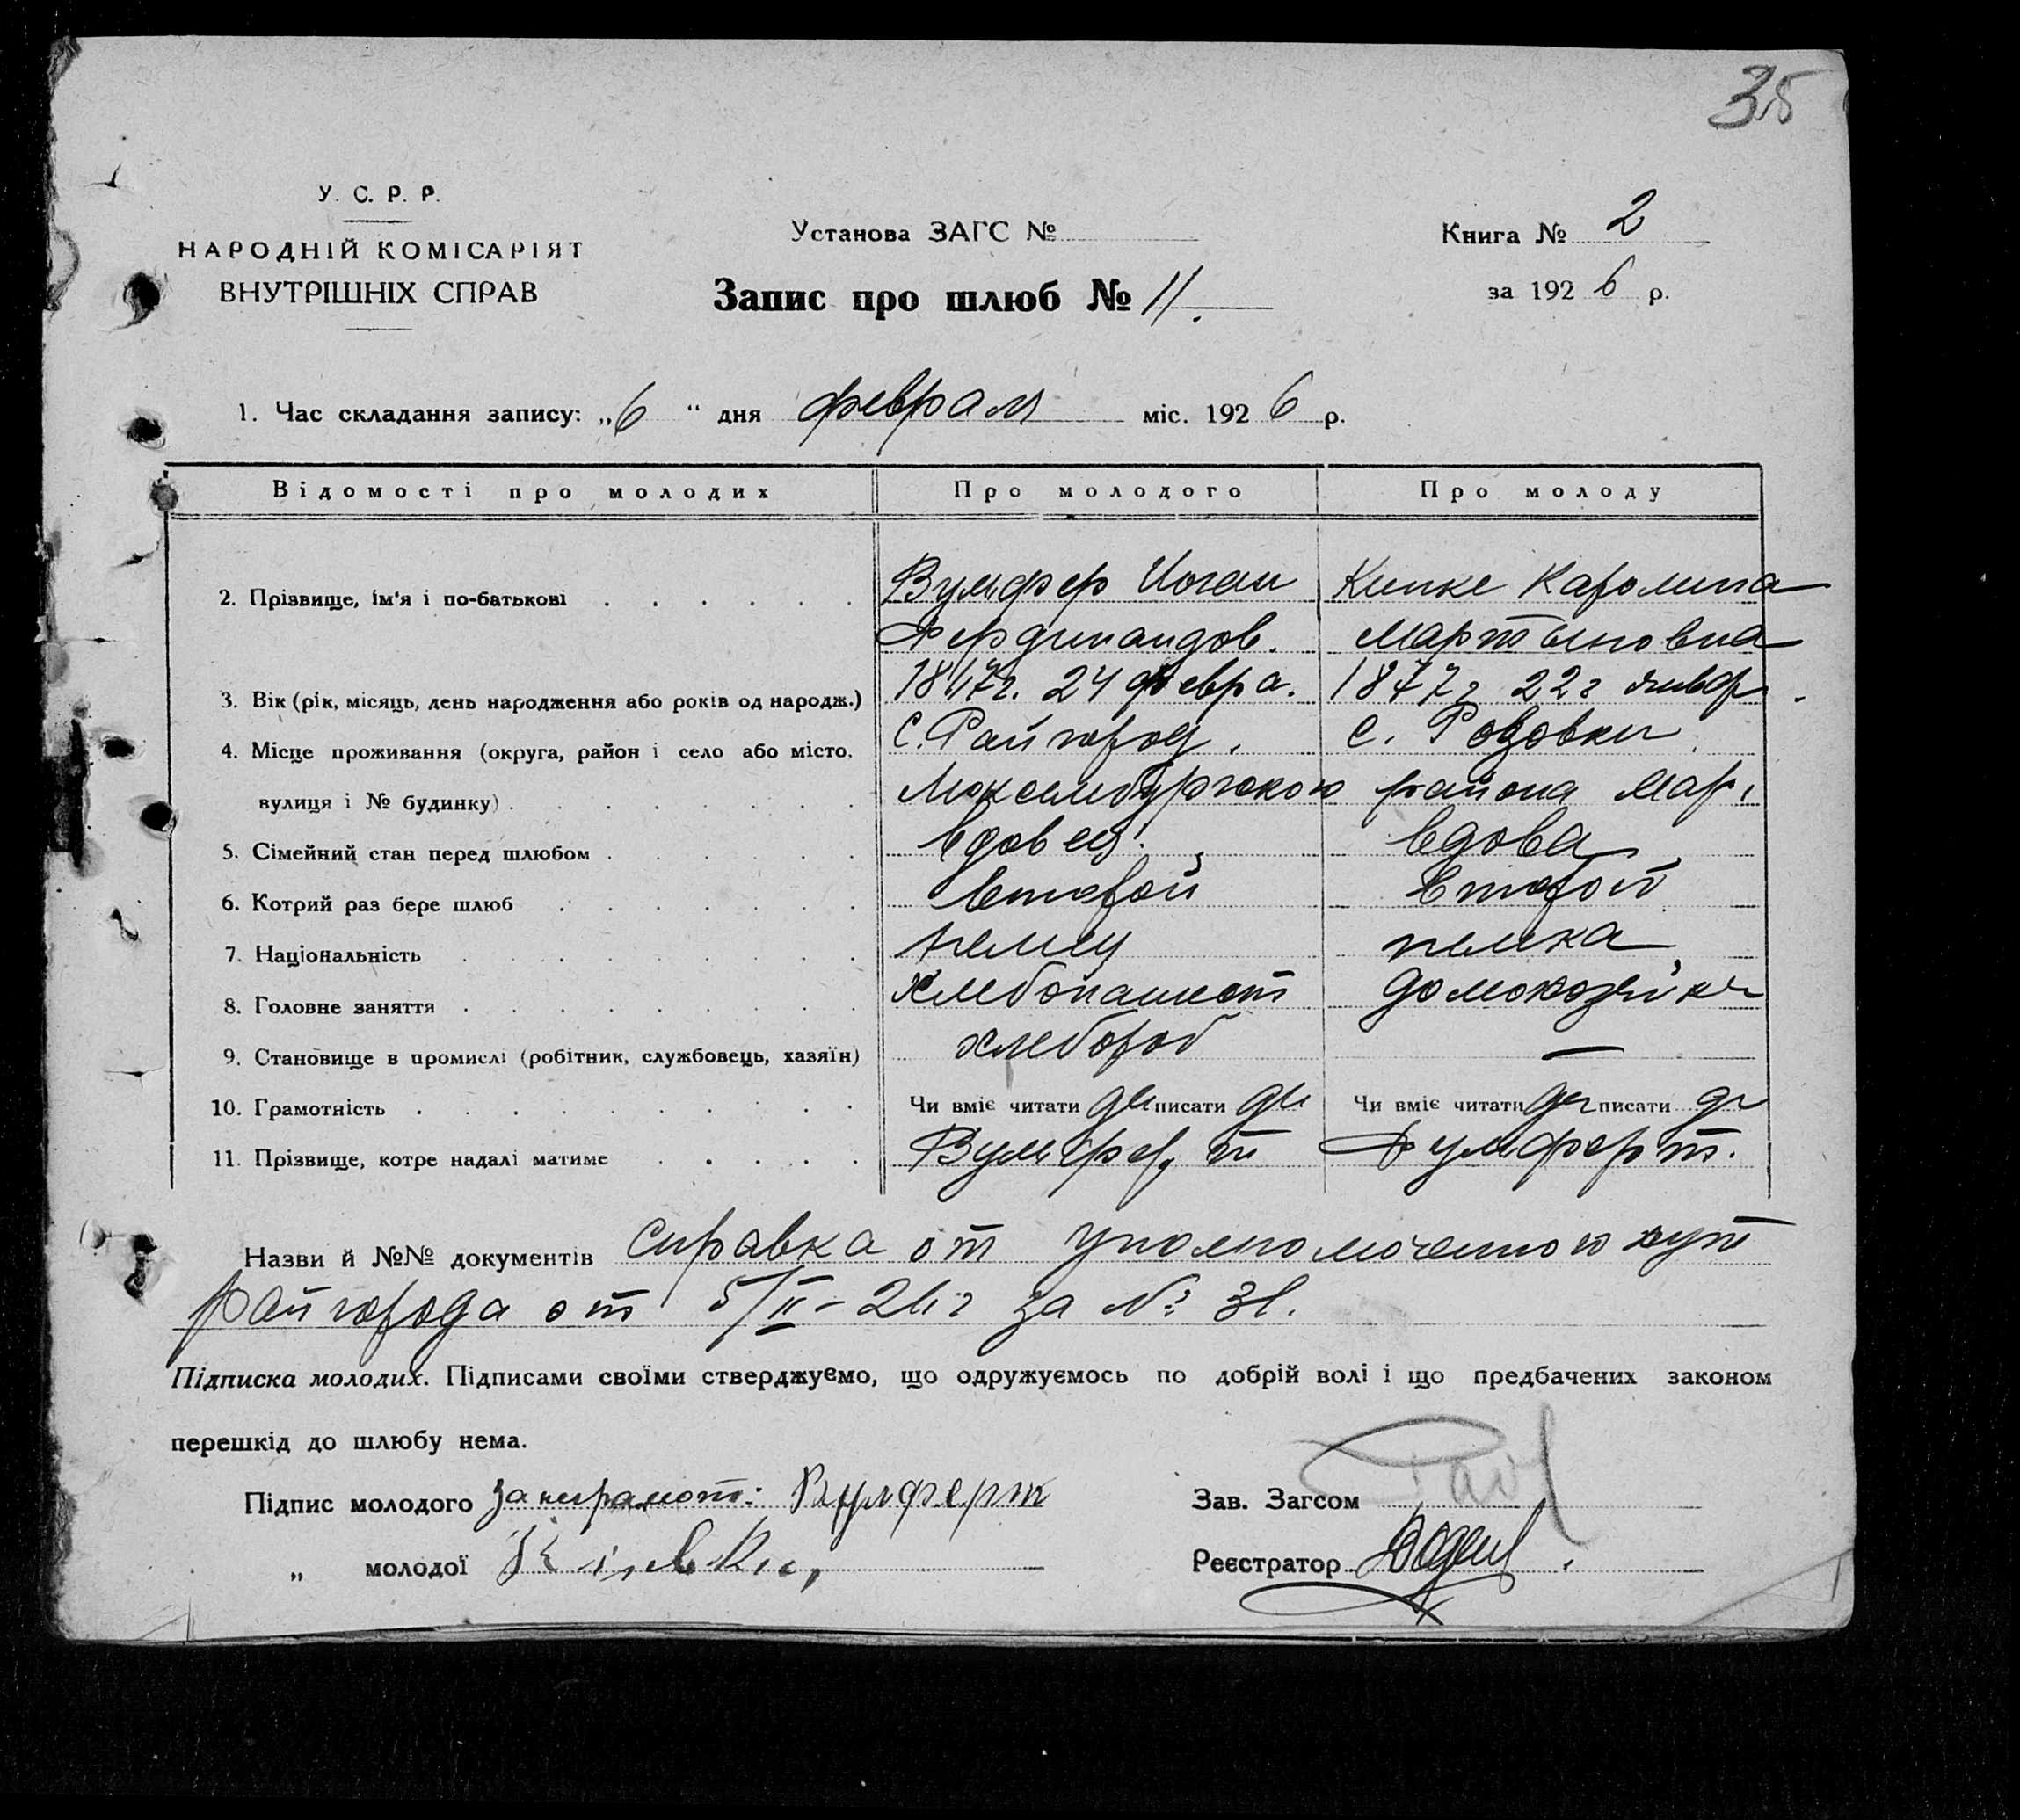 35
У. С. Р. Р.
НАРОДНІЙ КОМІСАРІЯТ
ВНУТРІШНІХ СПРАВ
Установа ЗАГС №
Запис про шлюб № 11.
Книга № 2
за 1926 р.
1. Час складання запису: „6“ дня февраля міс. 1926 р.
Відомості про молодих Про молодого Про молоду
2. Прізвище, ім'я і по-батькові Вульфер Иоган Кипке Каролина
Фердинандов. Мартыновна
3. Вік (рік, місяць, день народження або років од народж.) 24 февра. 1877г 22г январ.
4. Місце проживання (округа, район і село або місто, С. Райгород. с. Розовки
вулиця і № будинку) Люксембургского района Мар.
5. Сімейний стан перед шлюбом вдовец. вдова
6. Котрий раз бере шлюб второй второй
7. Національність немец немка
8. Головне заняття хлебопашест домохозяйка
9. Становище в промислі (робітник, службовець, хазяїн) хлебороб —
10. Грамотність Чи вміє читати да писати да Чи вміє читати да писати да
11. Прізвище, котре надалі матиме Вульферт Вульферт.
Назви й №№ документів Справка от уполномоченного хут
Райгорода от 5/II-26г за № 31.
Підписка молодих. Підписами своїми стверджуємо, що одружуємось по добрій волі і що предбачених законом
перешкід до шлюбу нема.
Підпис молодого за неграмот: Вулферт
„ молодої
Зав. Загсом
Реєстратор